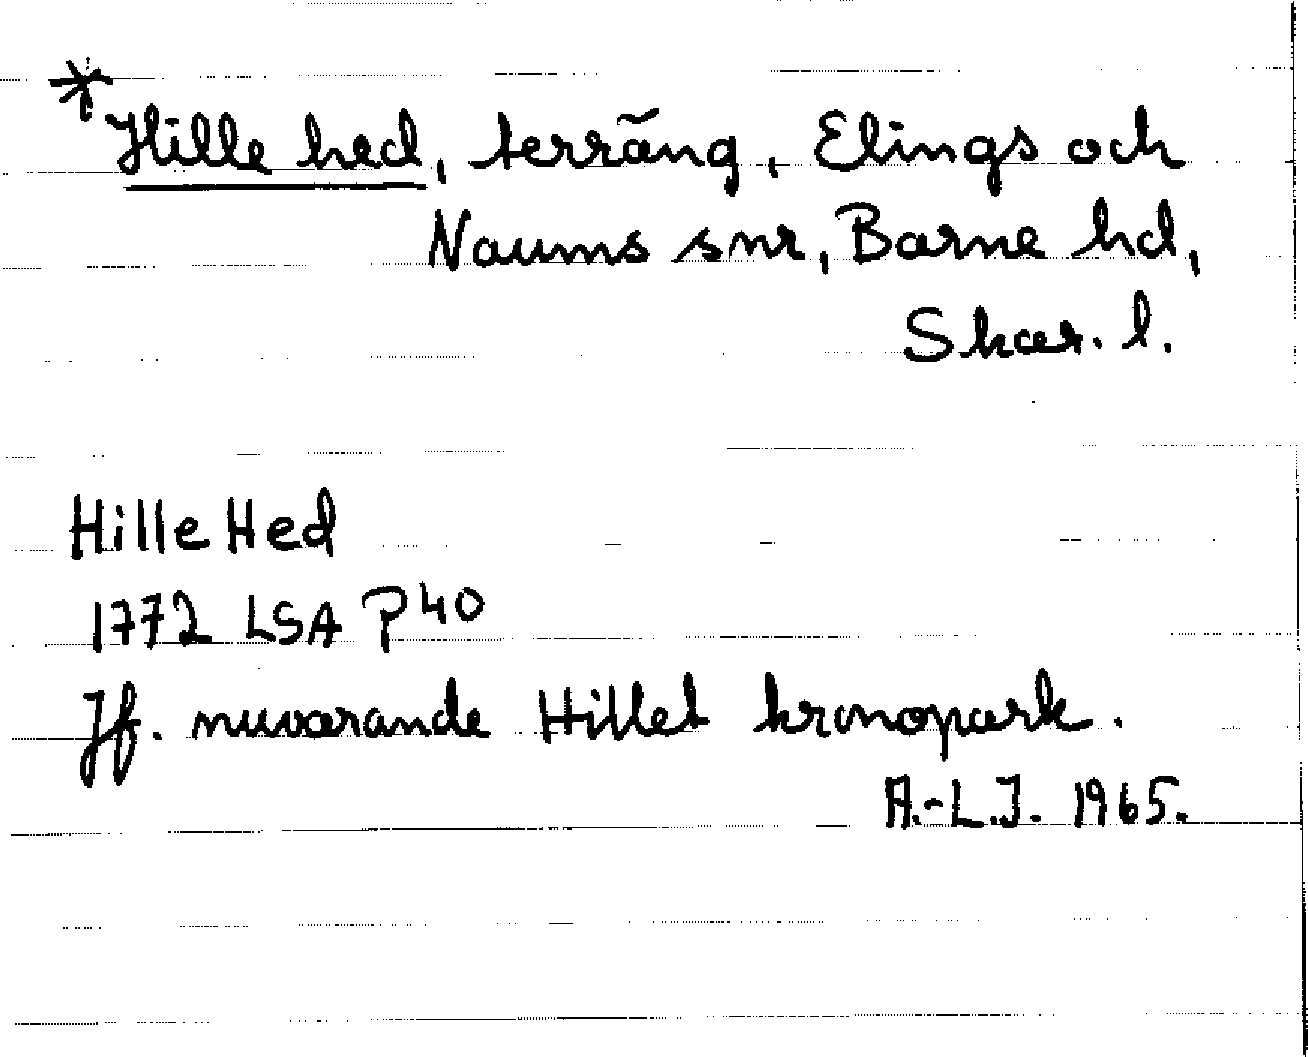 *Hille hed, terräng, Elings och
Naums snr, Barne hd,
Skar. l.
Hille Hed
1772 LSA P40
Jf. nuvarande Hillet kronopark.
A.-L.J. 1965.